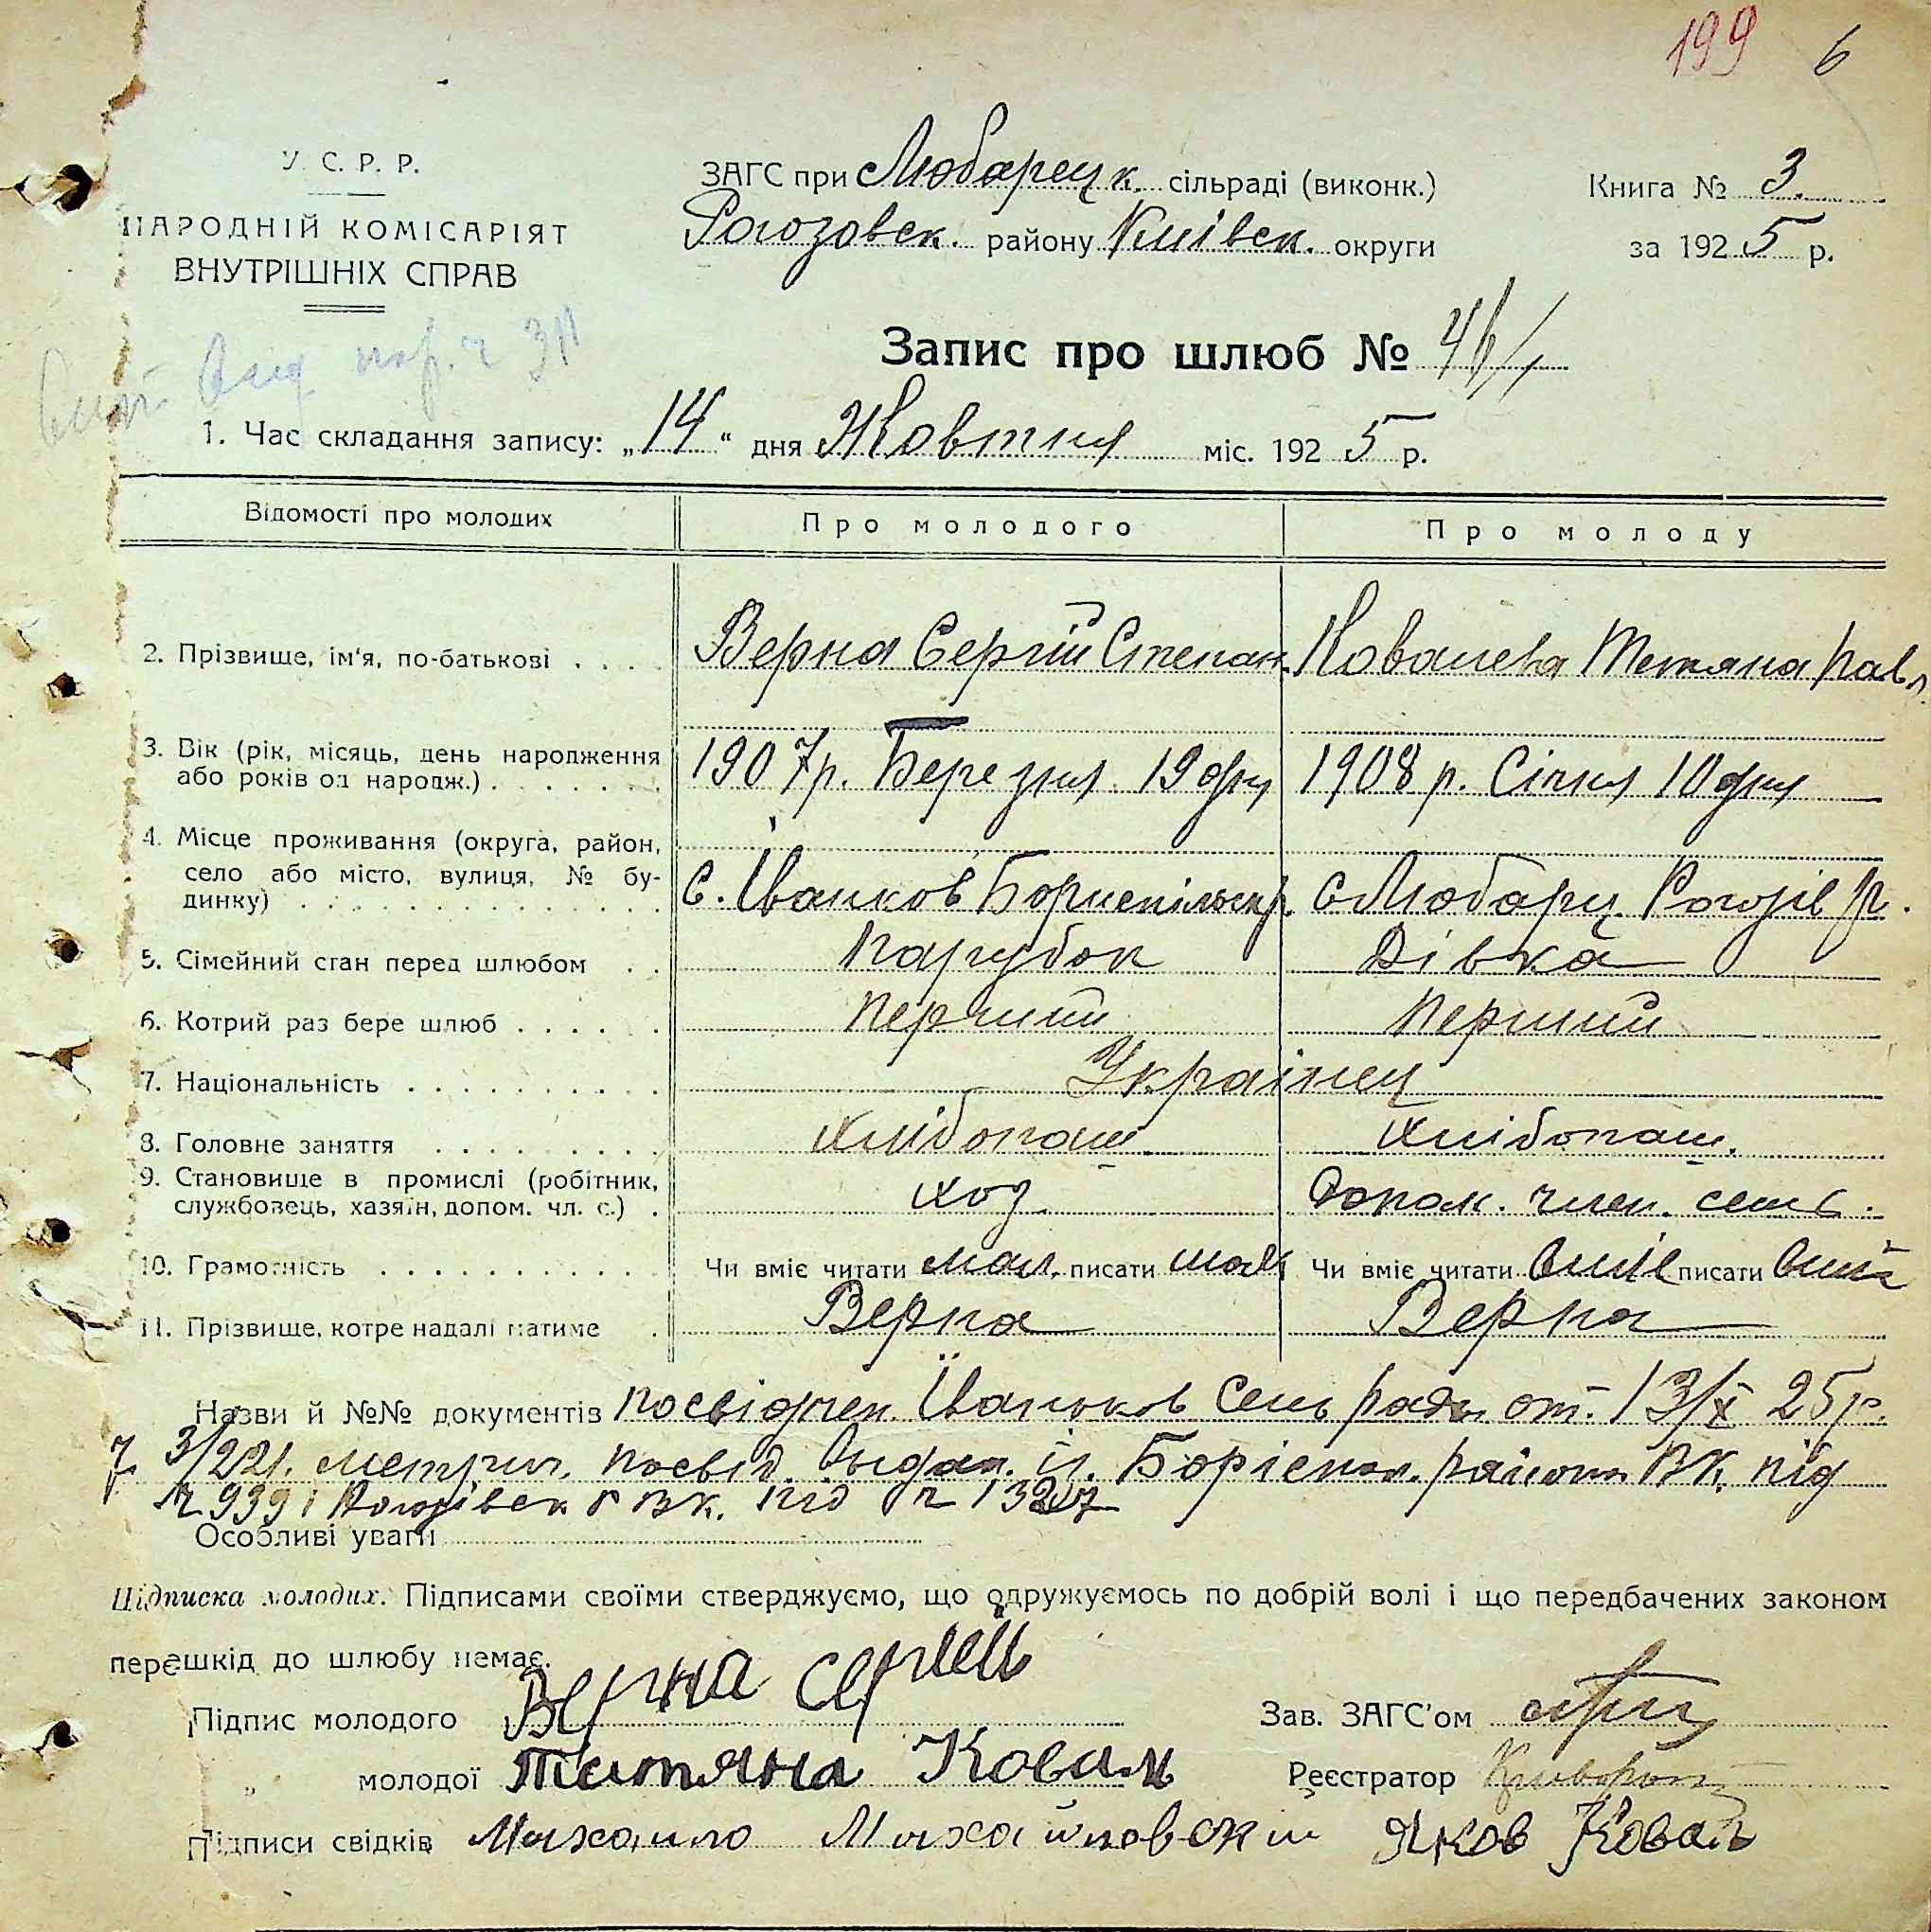 199 6
У. С. Р. Р.
НАРОДНІЙ КОМІСАРІЯТ
ВНУТРІШНІХ СПРАВ
ЗАГС при Любарецк. сільраді (виконк.)
Рогозовск. району Київск. округи
Книга № 3.
за 1925 р.
Запис про шлюб № 46/
1. Час складання запису: „14“ дня Жовтня міс. 1925 р.
Відомості про молодих Про молодого Про молоду
2. Прізвище, ім'я, по-батькові Верна Сергій Степан. Ковалева Тетяна Павл.
3. Вік (рік, місяць, день народження
або років од народж.) 1907р. Березня 19 дня 1908 р. Січня 10 дня
4. Місце проживання (округа, район,
село або місто, вулиця, № бу-
динку) с. Іванков Бориспільск р. с Любарц. Рогозів р.
5. Сімейний стан перед шлюбом Парубок Дівка
6. Котрий раз бере шлюб перший перший
7. Національність Українец
8. Головне заняття хлібопаш. хлібопаш.
9. Становище в промислі (робітник,
службовець, хазяїн, допом. чл. с.) хоз. допом. член. семь.
10. Грамотність Чи вміє читати мал. писати мал. Чи вміє читати вміє писати вміє
11. Прізвище, котре надалі матиме Верна Верна
Назви й №№ документів посвідчен. Іваньков Сель ради от. 13/X 25 р.
3/221. метрич. посвід. Выдан. із. Боріспол. района ВК. під
ч 939 і Рогозівск Р ВК. під ч 1327
Особливі уваги
Підписка молодих. Підписами своїми стверджуємо, що одружуємось по добрій волі і що передбачених законом
перешкід до шлюбу немає.
Підпис молодого Верна Сергѣй
Зав. ЗАГС'ом
„ молодої Татяна Коваль
Реєстратор
Підписи свідків Михайло Михайловский Яков Коваль